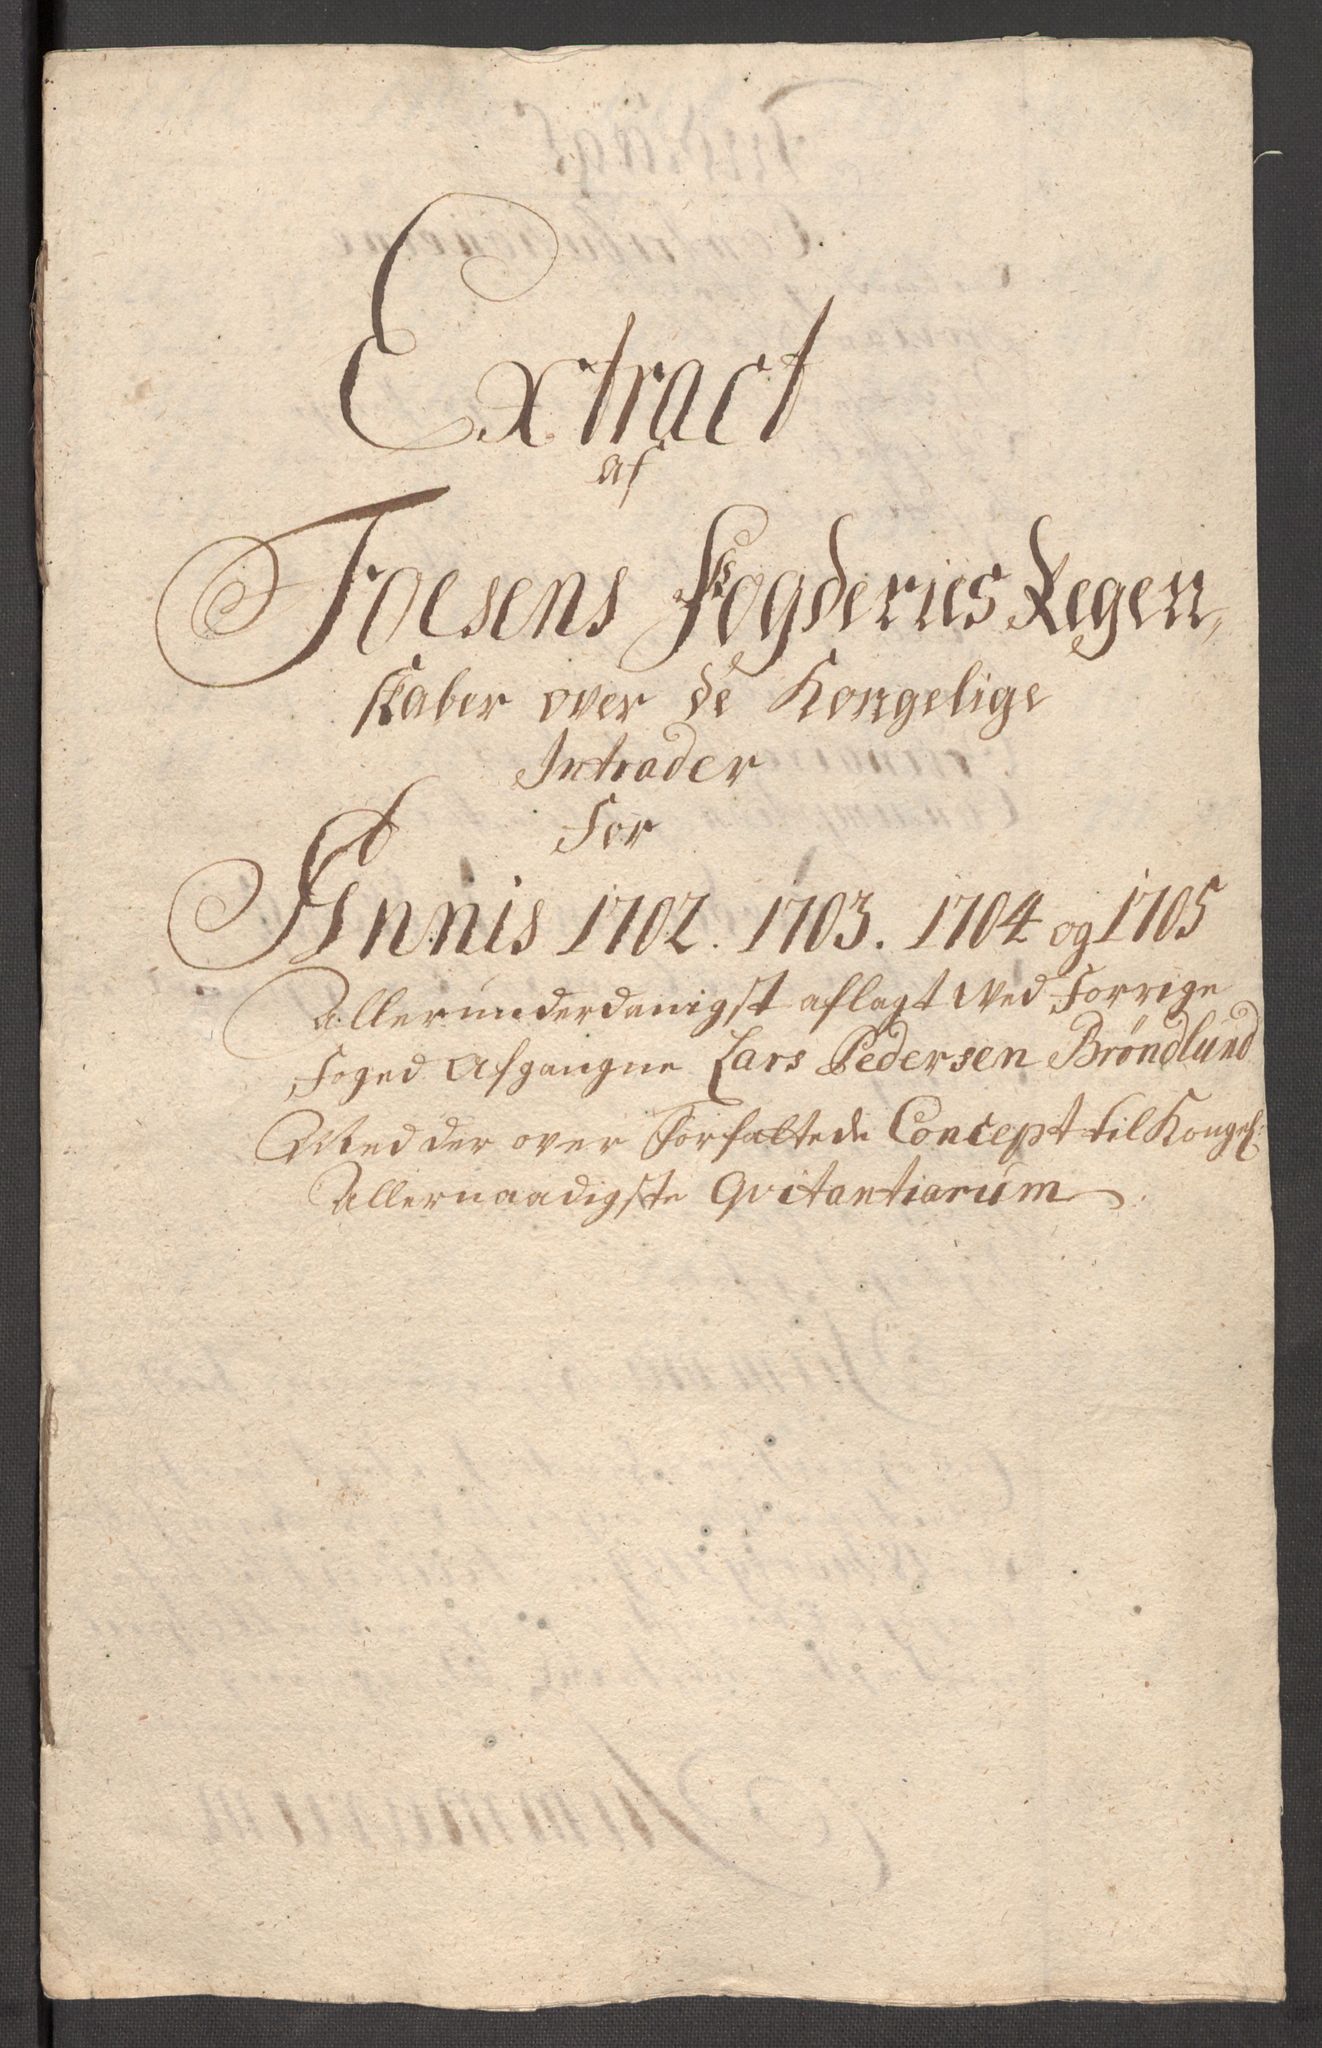 Extract
af
Foesens Fogderies Regen,
skaber over de Kongelige
Intrader
for
Annis 1702. 1703. 1704 og 1705
Allerunderdanigst aflagt Ved Forrige
Foged Afgangne Lars Pedersen Bröndlund
Med der over Forfattede Concept til Kongel:
Allernaadigste Qvitantiarum